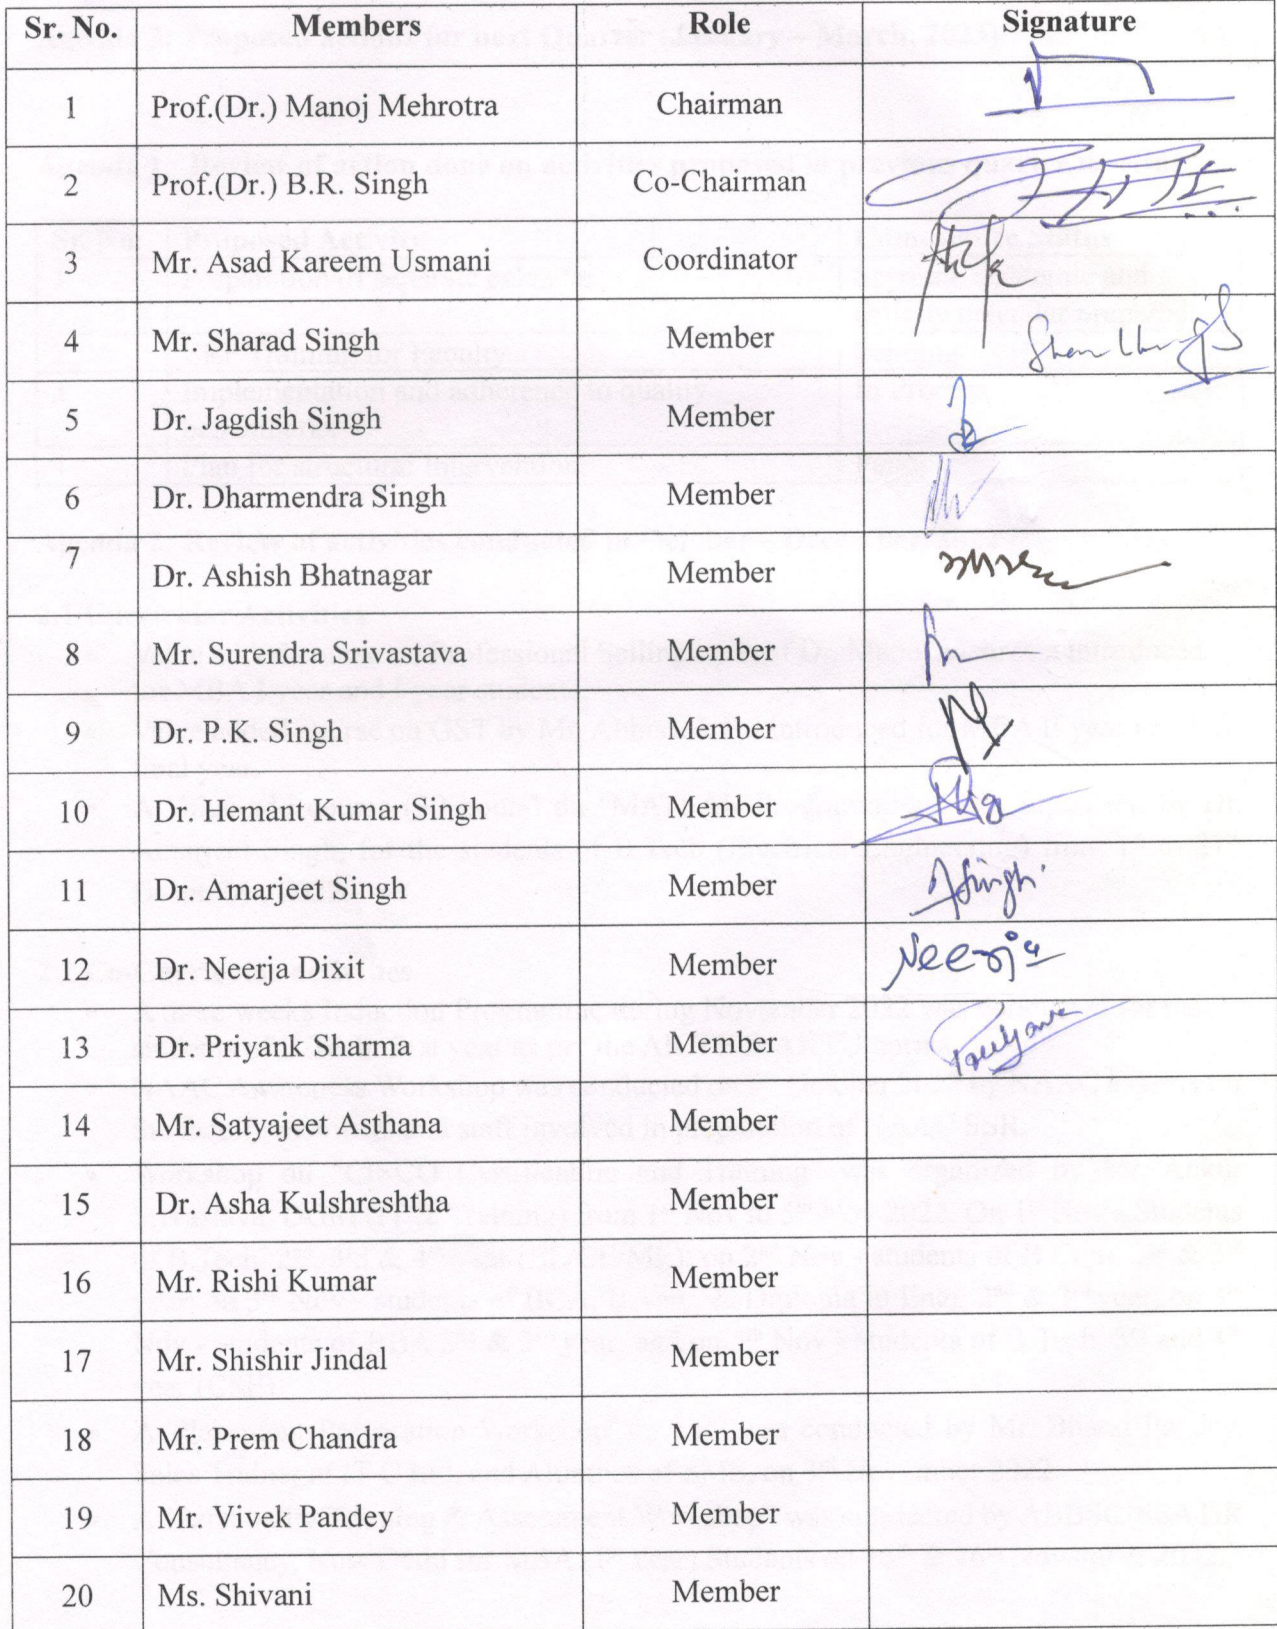 Sr. No. Members Role Signature
1 Prof.(Dr.) Manoj Mehrotra Chairman
2 Prof.(Dr.) B.R. Singh Co-Chairman
3 Mr. Asad Kareem Usmani Coordinator
4 Mr. Sharad Singh Member
5 Dr. Jagdish Singh Member
6 Dr. Dharmendra Singh Member
7 Dr. Ashish Bhatnagar Member
8 Mr. Surendra Srivastava Member
9 Dr. P.K. Singh Member
10 Dr. Hemant Kumar Singh Member
11 Dr. Amarjeet Singh Member ASingh.
12 Dr. Neerja Dixit Member Neerja
13 Dr. Priyank Sharma Member
14 Mr. Satyajeet Asthana Member
15 Dr. Asha Kulshreshtha Member
16 Mr. Rishi Kumar Member
17 Mr. Shishir Jindal Member
18 Mr. Prem Chandra Member
19 Mr. Vivek Pandey Member
20 Ms. Shivani Member